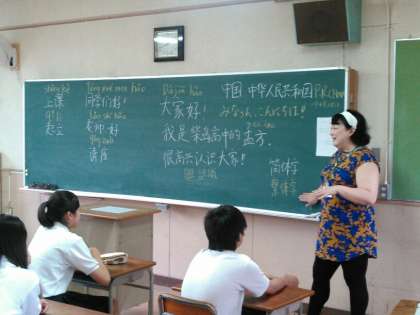 shàng kè
上课
qǐ lì
起立
tóng xué men hǎo
同学们好!
lǎo shī hǎo
老师好
qǐng zuò
请座
Dà jiā hǎo
大家好!
我是柴岛高中的孟方.
很高兴认识大家!
中国 中华人民共和国 P.R.China
みなさん、こんにちは!
简体字
繁体字